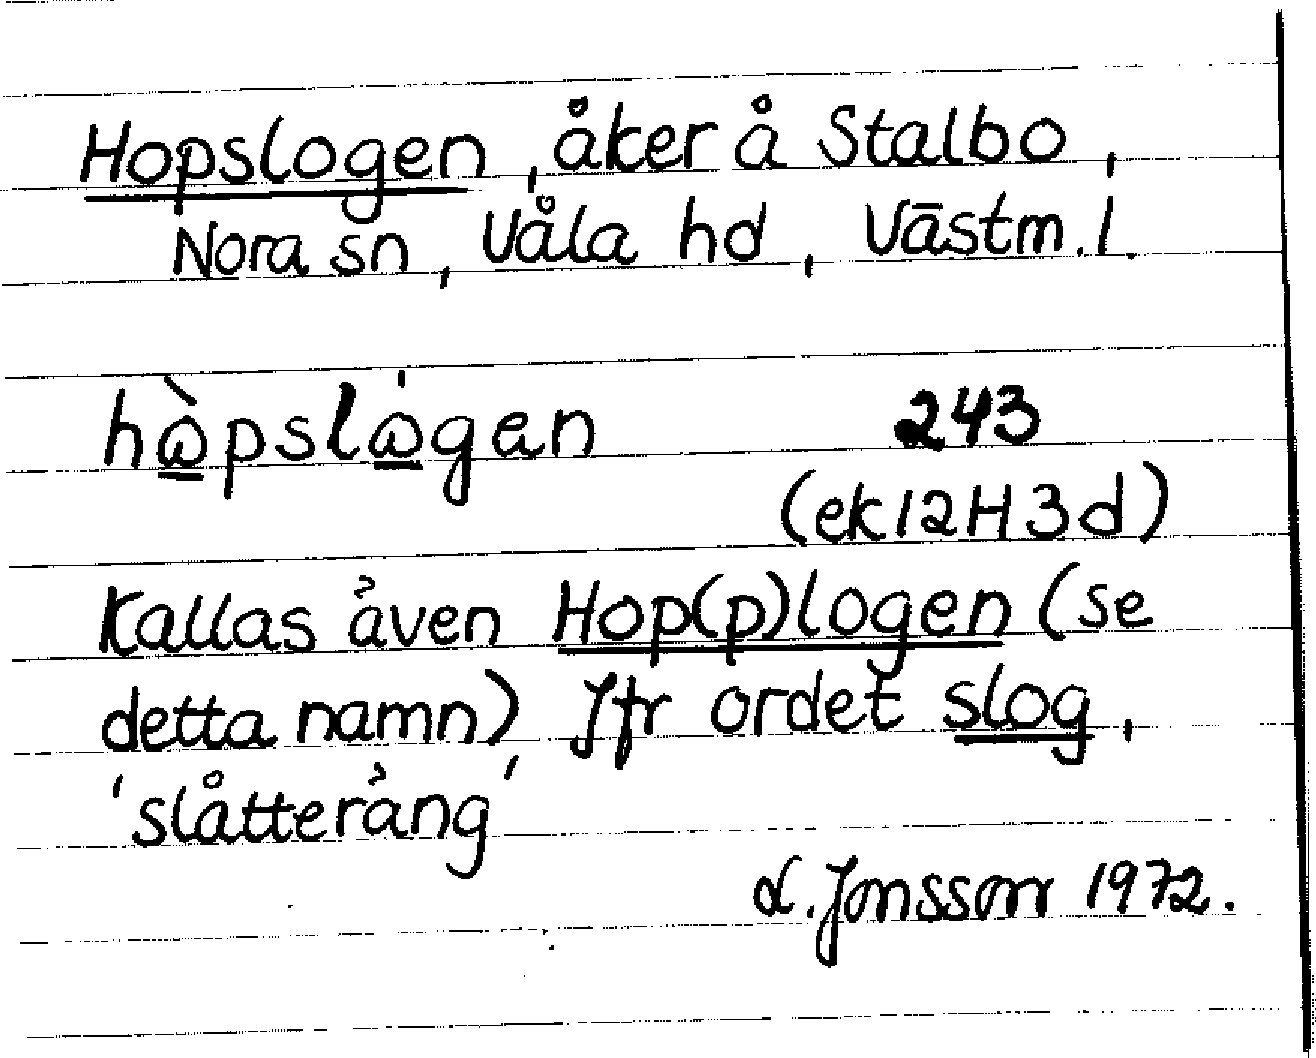 Hopslogen, åker å Stalbo,
Nora sn, Våla hd, Västm.l.
hὼpslώgen 243
(ek12H3d)
Kallas även Hop(p)logen (se
detta namn) Jfr ordet slog,
'slåtteräng'
L. Jonsson 1972.